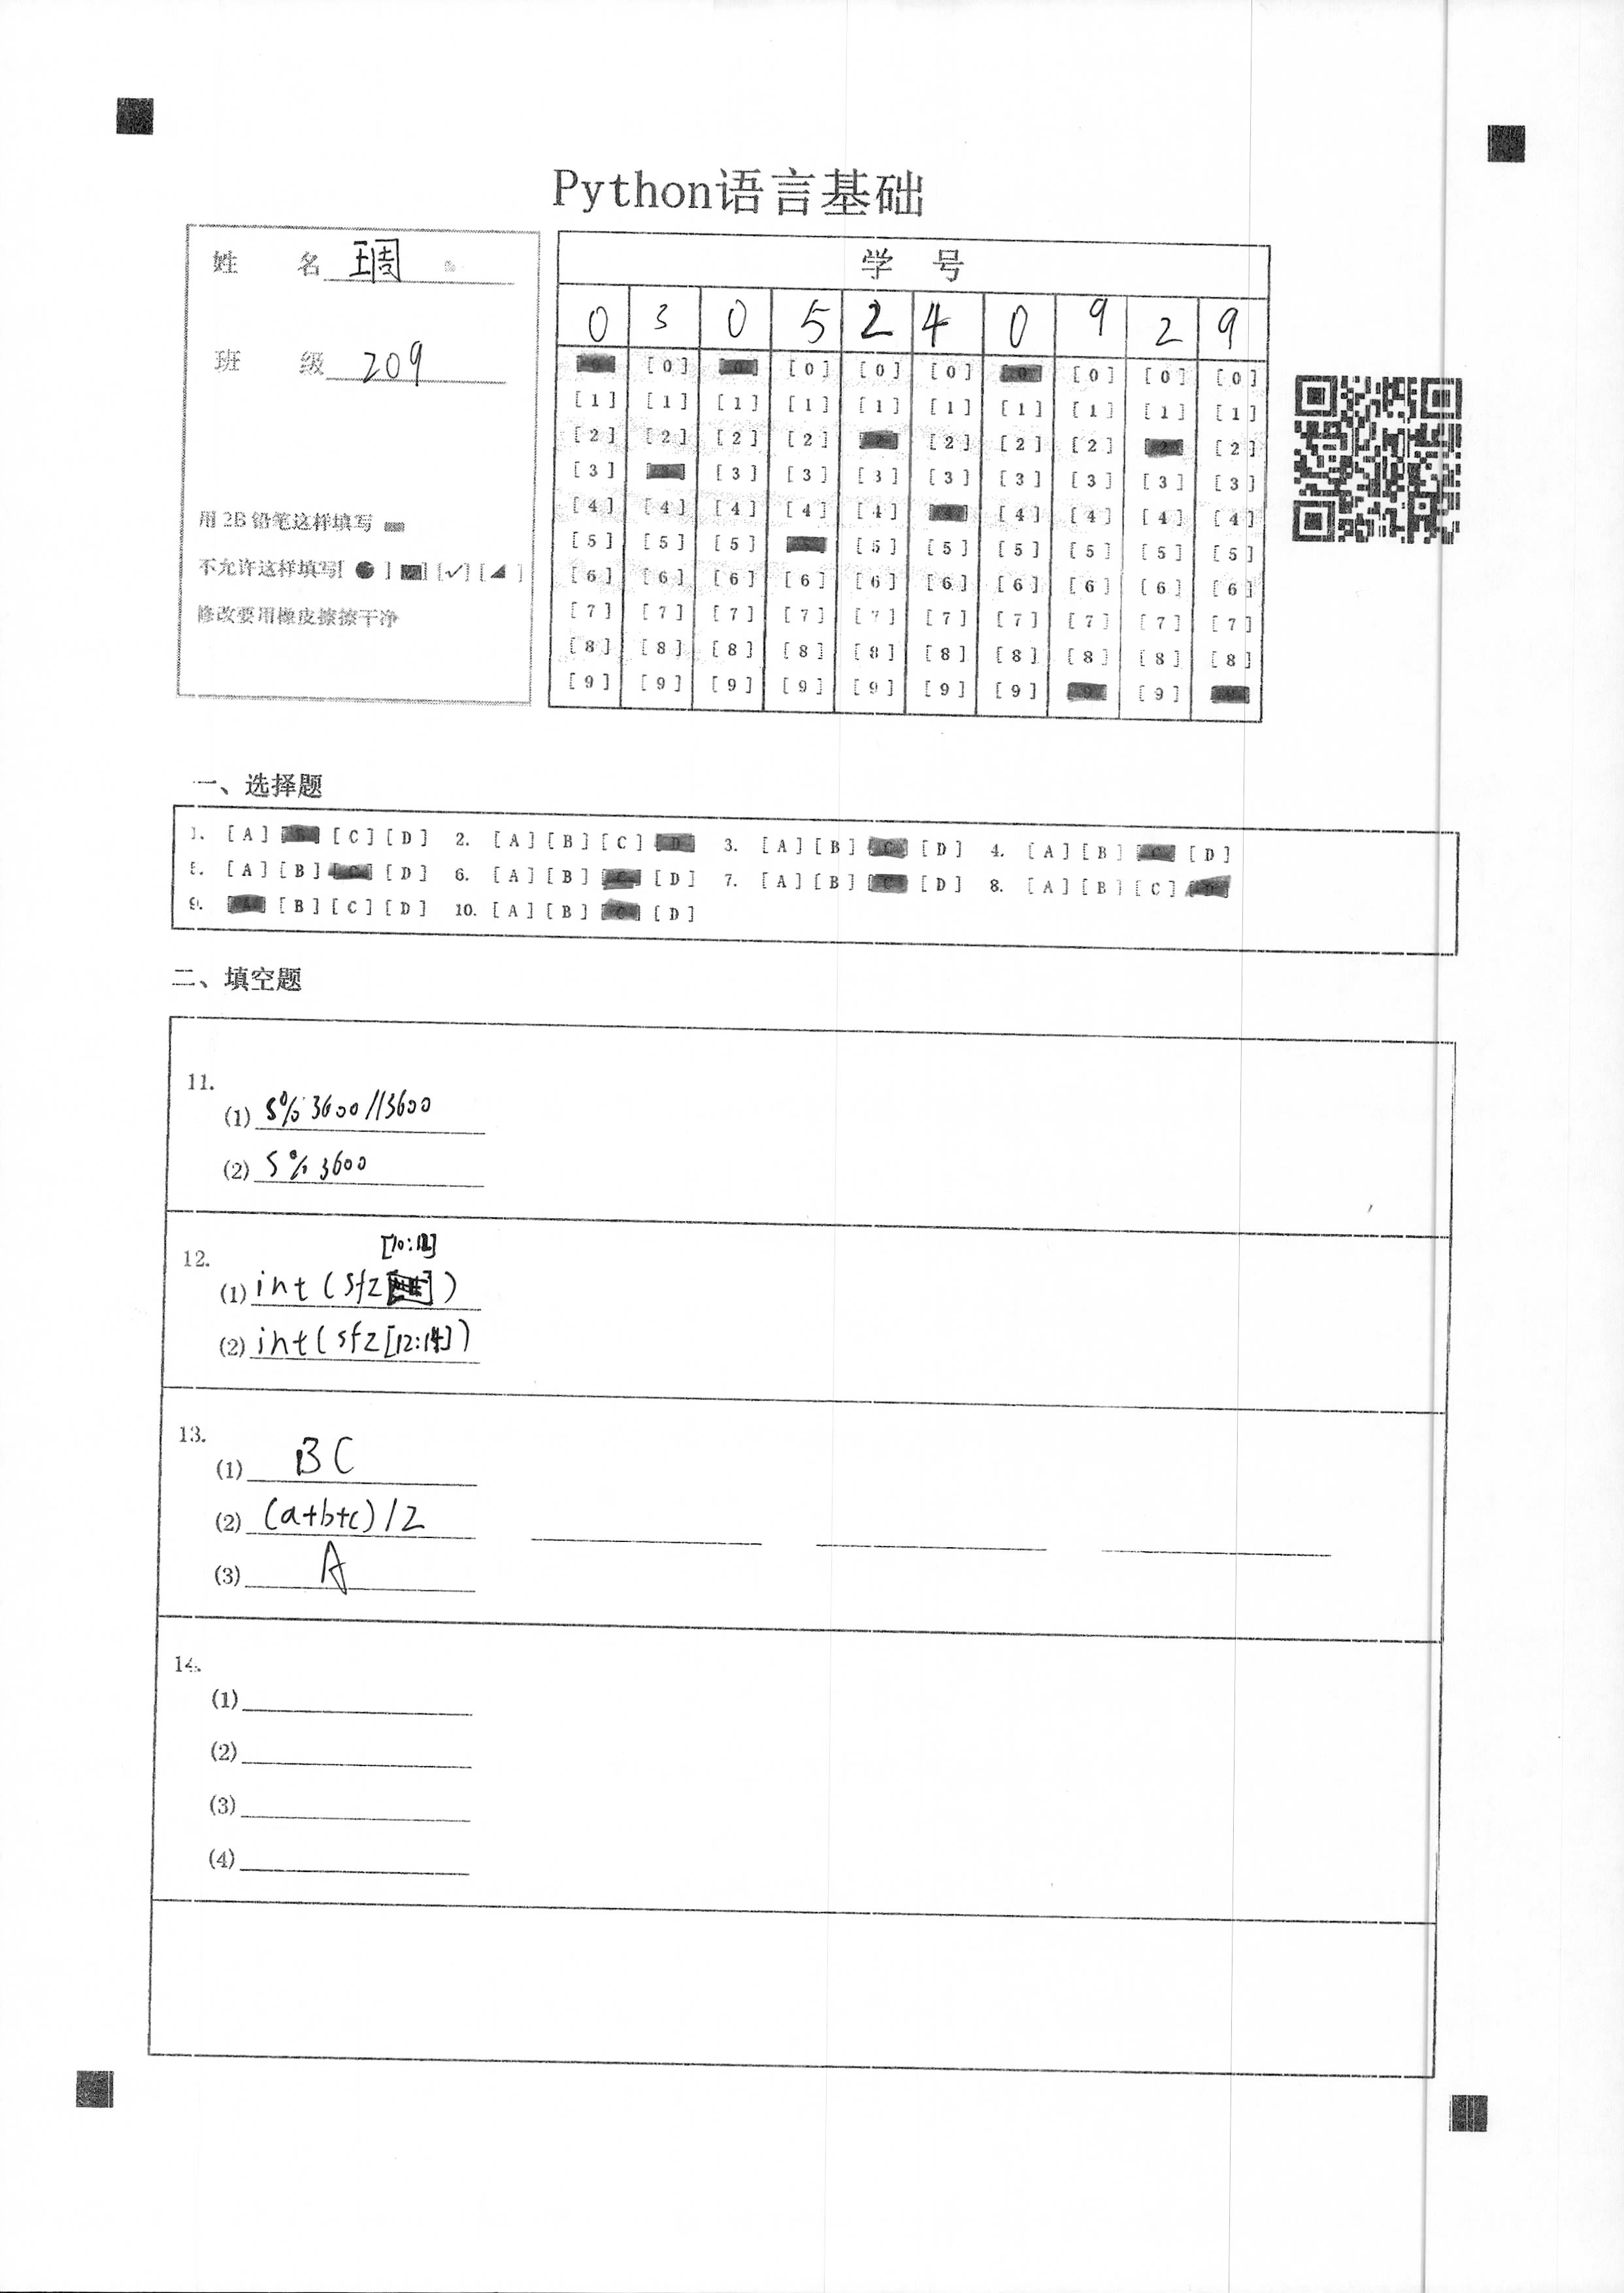 Python语言基础
姓 名 王周
班 级 209
用 2B 铅笔这样填写
不允许这样填写[ ● ] [ ] [✓] [ ]
修改要用橡皮擦擦干净
学 号
0 3 0 5 2 4 0 9 2 9
[0] [0] [0] [0] [0] [0] [0] [0] [0] [0]
[1] [1] [1] [1] [1] [1] [1] [1] [1] [1]
[2] [2] [2] [2] [2] [2] [2] [2] [2] [2]
[3] [3] [3] [3] [3] [3] [3] [3] [3] [3]
[4] [4] [4] [4] [4] [4] [4] [4] [4] [4]
[5] [5] [5] [5] [5] [5] [5] [5] [5] [5]
[6] [6] [6] [6] [6] [6] [6] [6] [6] [6]
[7] [7] [7] [7] [7] [7] [7] [7] [7] [7]
[8] [8] [8] [8] [8] [8] [8] [8] [8] [8]
[9] [9] [9] [9] [9] [9] [9] [9] [9] [9]
一、选择题
1. [A] [B] [C] [D] 2. [A] [B] [C] [D] 3. [A] [B] [C] [D] 4. [A] [B] [C] [D]
5. [A] [B] [C] [D] 6. [A] [B] [C] [D] 7. [A] [B] [C] [D] 8. [A] [B] [C] [D]
9. [A] [B] [C] [D] 10. [A] [B] [C] [D]
二、填空题
11.
(1) s%3600//3600
(2) s%3600
12.
[10:12]
(1) int(sfz )
(2) int(sfz[12:14])
13.
(1) BC
(2) (a+b+c)/2
(3) A
14.
(1)
(2)
(3)
(4)